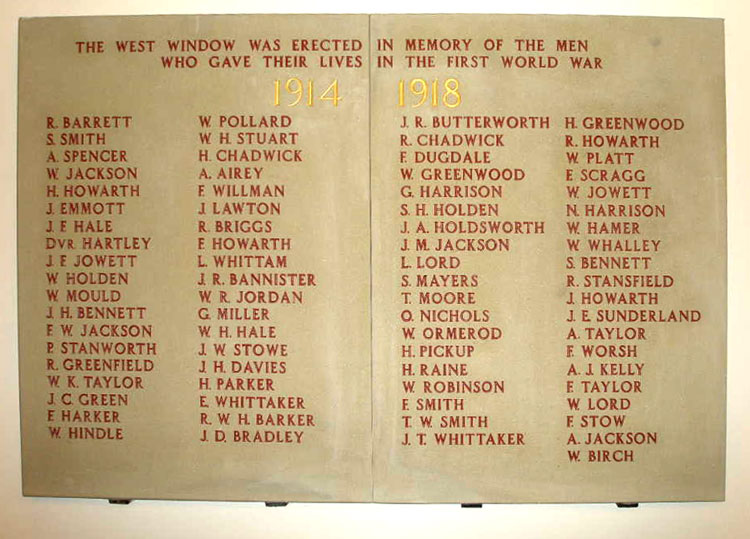 THE WEST WINDOW WAS ERECTED IN MEMORY OF THE MEN
WHO GAVE THEIR LIVES IN THE FIRST WORLD WAR
1914 1918
R. BARRETT
S. SMITH
A. SPENCER
W. JACKSON
H. HOWARTH
J. EMMOTT
J. F. HALE
DVR. HARTLEY
J. F. JOWETT
W. HOLDEN
W. MOULD
J. H. BENNETT
F. W. JACKSON
P. STANWORTH
R. GREENFIELD
W. K. TAYLOR
J. C. GREEN
F. HARKER
W. HINDLE
W. POLLARD
W. H. STUART
H. CHADWICK
A. AIREY
F. WILLMAN
J. LAWTON
R. BRIGGS
F. HOWARTH
L. WHITTAM
J. R. BANNISTER
W. R. JORDAN
G. MILLER
W. H. HALE
J. W. STOWE
J. H. DAVIES
H. PARKER
E. WHITTAKER
R. W. H. BARKER
J. D. BRADLEY
J. R. BUTTERWORTH
R. CHADWICK
F. DUGDALE
W. GREENWOOD
G. HARRISON
S. H. HOLDEN
J. A. HOLDSWORTH
J. M. JACKSON
L. LORD
S. MAYERS
T. MOORE
O. NICHOLS
W. ORMEROD
H. PICKUP
H. RAINE
W. ROBINSON
F. SMITH
T. W. SMITH
J. T. WHITTAKER
H. GREENWOOD
R. HOWARTH
W. PLATT
F. SCRAGG
W. JOWETT
N. HARRISON
W. HAMER
W. WHALLEY
S. BENNETT
R. STANSFIELD
J. HOWARTH
J. E. SUNDERLAND
A. TAYLOR
F. WORSH
A. J. KELLY
F. TAYLOR
W. LORD
F. STOW
A. JACKSON
W. BIRCH